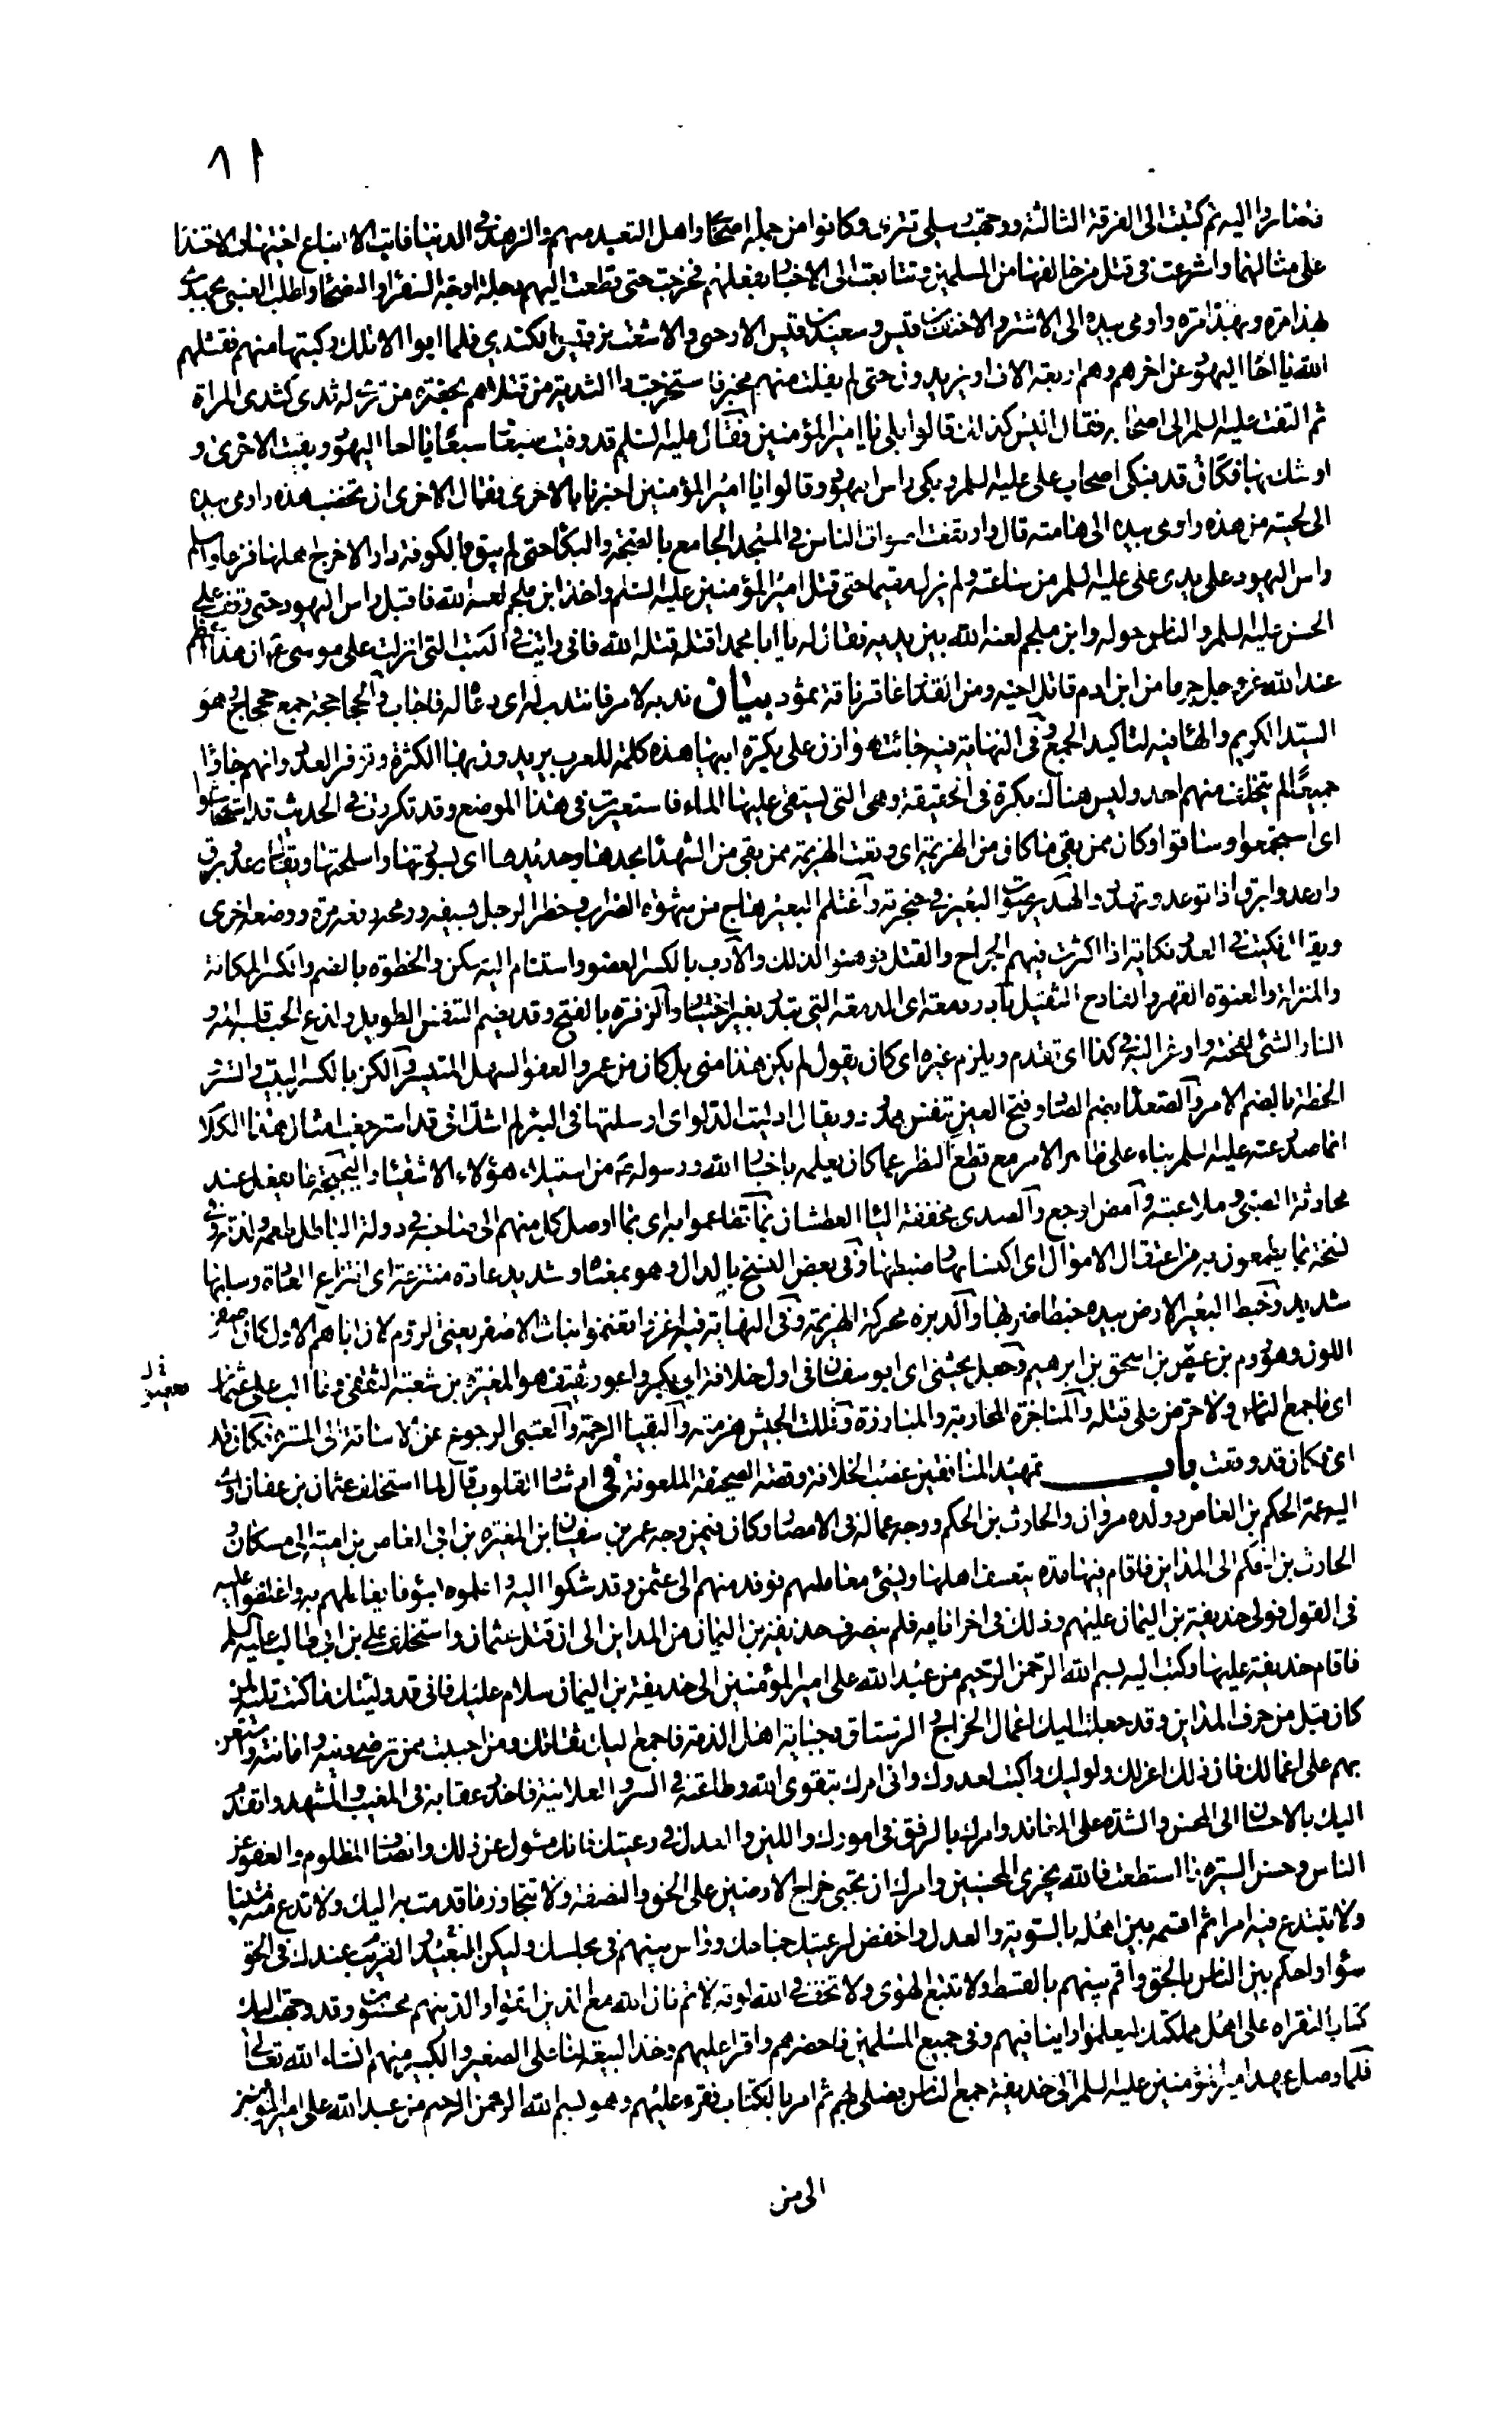 ٨١
فصاروا اليه ثم كتبت الى الفرقة الثالثة ووجهت رسلي تترى وكانوا من جملة اصحابي واهل التعبد منهم والزهد في الدنيا فابت الا اتباع اختيها والاحتذاء
على مثالهما واشرعت في قتل من خالفها من المسلمين وتتابعت الى الاخبار بفعلهم فخرجت حتى قطعت اليهم دجلة اوجه السفراء والنصحاء واطلب العتبى بجهدي
بهذا مرة وبهذا مرة واومى بيده الى الاشتر والاحنف بن قيس وسعيد بن قيس الارحبي والاشعث بن قيس الكندي فلما ابوا الا تلك ركبتها منهم فقتلهم
الله يا اخا اليهود عن اخرهم وهم اربعة الاف او يزيدون حتى لم يفلت منهم مخبر فاستخرجت ذا الثدية من قتلاهم بحضرة من ترى له ثدي كثدي المراة
ثم التفت عليه السلم الى اصحابه فقال اليس كذلك قالوا بلى يا امير المؤمنين فقال عليه السلم قد وفيت سبعا وسبعا يا اخا اليهود وبقيت الاخرى و
اوشك بها فكان قد فبكى اصحاب علي عليه السلم وبكى راس اليهود وقالوا يا امير المؤمنين اخبرنا بالاخرى فقال الاخرى ان تخضب هذه واومى بيده
الى لحيته من هذه واومى بيده الى هامته قال وارتفعت اصوات الناس في المسجد الجامع بالضجة والبكاء حتى لم يبق بالكوفة دار الا خرج اهلها فزعا واسلم
راس اليهود على يدي علي عليه السلم من ساعته ولم يزل مقيما حتى قتل امير المؤمنين عليه السلم واخذ ابن ملجم لعنه الله فاقبل راس اليهود حتى وقف على
الحسن عليه السلم والناس حوله وابن ملجم لعنه الله بين يديه فقال له يا ابا محمد اقتله قتله الله فاني رايت في الكتب التي انزلت على موسى ع ان هذا اعظم
عند الله عز وجل جرما من ابن ادم قاتل اخيه ومن القدار عاقر ناقة ثمود بيان ندبه لامر فانتدب له اي دعاه له فاجاب والجحاجحة جمع جحجاح وهو
السيد الكريم والهاء فيه لتاكيد الجمع وفي النهاية فيه جاءت هوازن على بكرة ابيها هذه كلمة للعرب يريدون بها الكثرة وتوفر العدد وانهم جاؤا
جميعا لم يتخلف منهم احد وليس هناك بكرة في الحقيقة وهي التي يستقى عليها الماء فاستعيرت في هذا الموضع وقد تكررت في الحديث قد استوسقوا
اي استجمعوا وساقوا وكان ممن بقي ما كان من الهزيمة اي وقعت الهزيمة ممن بقي من الشهداء بحدها وحديدها اي بسورتها واسلحتها ويقال رعد وبرق
وارعد وابرق اذا توعد وتهدد والهدير صوت البعير في حنجرته واغتلم البعير هاج من شهوة الضراب وخطر الرجل بسيفه ورمحه رفعه مرة ووضعه اخرى
ويقال نكيت في العدو نكاية اذا اكثرت فيهم الجراح والقتل فوهنوا لذلك والارب بالكسر العضو واستنام اليه سكن والحظوة بالضم والكسر المكانة
والمنزلة والعنوة القهر والفادح الثقيل بادر دمعة اي الدمعة التي تبدر بغير اختيار والزفرة بالفتح وقد يضم التنفس الطويل ولذع الحب قلبه المه و
النار الشئ لفحته واوعز اليه في كذا اي تقدم ويلزم غيره اي كان يقول لم يكن هذا مني بل كان من عمر والعفو السهل المتيسر والكن بالكسر البيت والستر
الخطة بالضم الامر والصعداء بضم الصاد وفتح العين تنفس ممدود ويقال ادليت الدلو اي ارسلتها في البئر لم اشك اني قد استرجعت امثال هذا الكلام
انما صدر عنه عليه السلم بناء على ظاهر الامر مع قطع النظر عما كان يعلمه باخبار الله ورسوله ص من استيلاء هؤلاء الاشقياء والبحبحة ما يفعل عند
محادثة الصبي وملاعبته وامض اوجع والصدى مخففة الياء العطشان بما تفاعموا به اي بما اوصل كل منهم الى صاحبه في دولة الباطل طعمه ولذته وفي
نسخة بما يطمعون به من اعتقال الاموال اي اكتسابها وضبطها وفي بعض النسخ بالدال وهو بمعناه وشديد عادة منتزعة اي انتزاع العادة وسلبها
شديد وخبط البعير الارض بيده خبطا ضربها والدبرة محركة الهزيمة وفي النهاية فيه اغزوا تغنموا بنات الاصفر يعني الروم لان اباهم الاول كان اصفر
اللون وهو روم بن عيص بن اسحق بن ابرهيم وجعل يحثني اي ابو سفيان في اول خلافة ابي بكر واعور ثقيف هو المغيرة بن شعبة الثقفي وما الب على عثمان
اي ما جمع الناس ولا حرض على قتله والمناجزة المحاربة والمبارزة وفللت الجيش هزمته والبقيا الرحمة والعتبى الرجوع عن الاساءة الى المسرة فكان قد
اي فكان قد وقعت باب تمهيد المنافقين غصب الخلافة وقصة الصحيفة الملعونة في ارشاد القلوب قال لما استخلف عثمان بن عفان اوى
اليه عمه الحكم بن العاص وولده مروان والحارث بن الحكم ووجه عماله في الامصار وكان فيمن وجه عمر بن سفيان بن المغيرة بن ابي العاص بن امية الى مسكان و
الحارث بن الحكم الى المداين فاقام فيها مدة يتعسف اهلها ويسئ معاملتهم فوفد منهم الى عثمن وفد شكوا اليه واعلموه بسوء ما يعاملهم به واغلظوا عليه
في القول فولى حذيفة بن اليمان عليهم وذلك في اخر ايامه فلم ينصرف حذيفة بن اليمان من المداين الى ان قتل عثمان واستخلف علي بن ابي طالب عليه السلم
فاقام حذيفة عليها وكتب اليه بسم الله الرحمن الرحيم من عبد الله علي امير المؤمنين الى حذيفة بن اليمان سلام عليك فاني قد وليتك ما كنت تليه لمن
كان قبل من حرف المداين وقد جعلت اليك اعمال الخراج والرستاق وجباية اهل الذمة فاجمع اليك ثقاتك ومن احببت ممن ترضى دينه وامانته واستعن
بهم على اعمالك فان ذلك اعز لك ولوليك واكبت لعدوك واني امرك بتقوى الله وطاعته في السر والعلانية فاحذر عقابه في المغيب والمشهد واتقدم
اليك بالاحسان الى المحسن والشدة على المعاند وامرك بالرفق في امورك واللين والعدل في رعيتك فانك مسئول عن ذلك وانصاف المظلوم والعفو عن
الناس وحسن السيرة ما استطعت فالله يجزي المحسنين وامرك ان تجبي خراج الارضين على الحق والنصفة ولا تتجاوز ما قدمت به اليك ولا تدع منه شيئا
ولا تبتدع فيه امرا ثم اقسمه بين اهله بالسوية والعدل واخفض لرعيتك جناحك وواس بينهم في مجلسك وليكن البعيد والقريب عندك في الحق
سواء واحكم بين الناس بالحق واقم بينهم بالقسط ولا تتبع الهوى ولا تخف في الله لومة لائم فان الله مع الذين اتقوا والذين هم محسنون وقد وجهت اليك
كتابا لتقراه على اهل مملكتك ليعلموا راينا فيهم وفي جميع المسلمين فاحضرهم واقرا عليهم وخذ البيعة لنا على الصغير والكبير منهم انشاء الله تعالى
فلما وصل عهد امير المؤمنين عليه السلم الى حذيفة جمع الناس فصلى بهم ثم امر بالكتاب فقرء عليهم وهو بسم الله الرحمن الرحيم من عبد الله علي امير المؤمنين
الى من